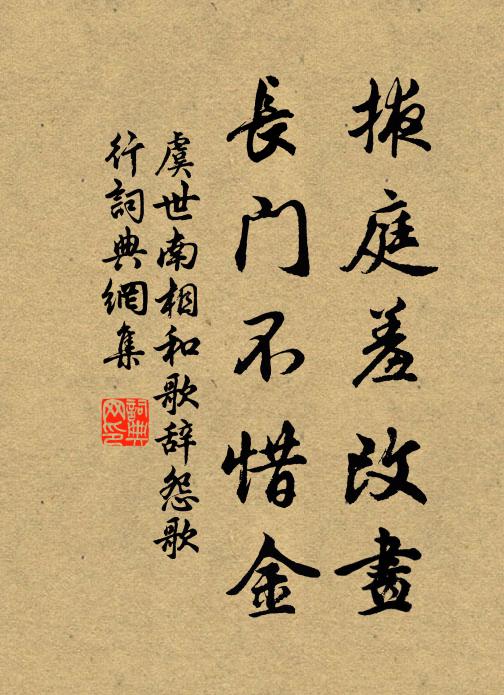 掖庭羞改畫
長門不惜金
虞世南相和歌辞怨歌
行詞典網集
詞典
网印